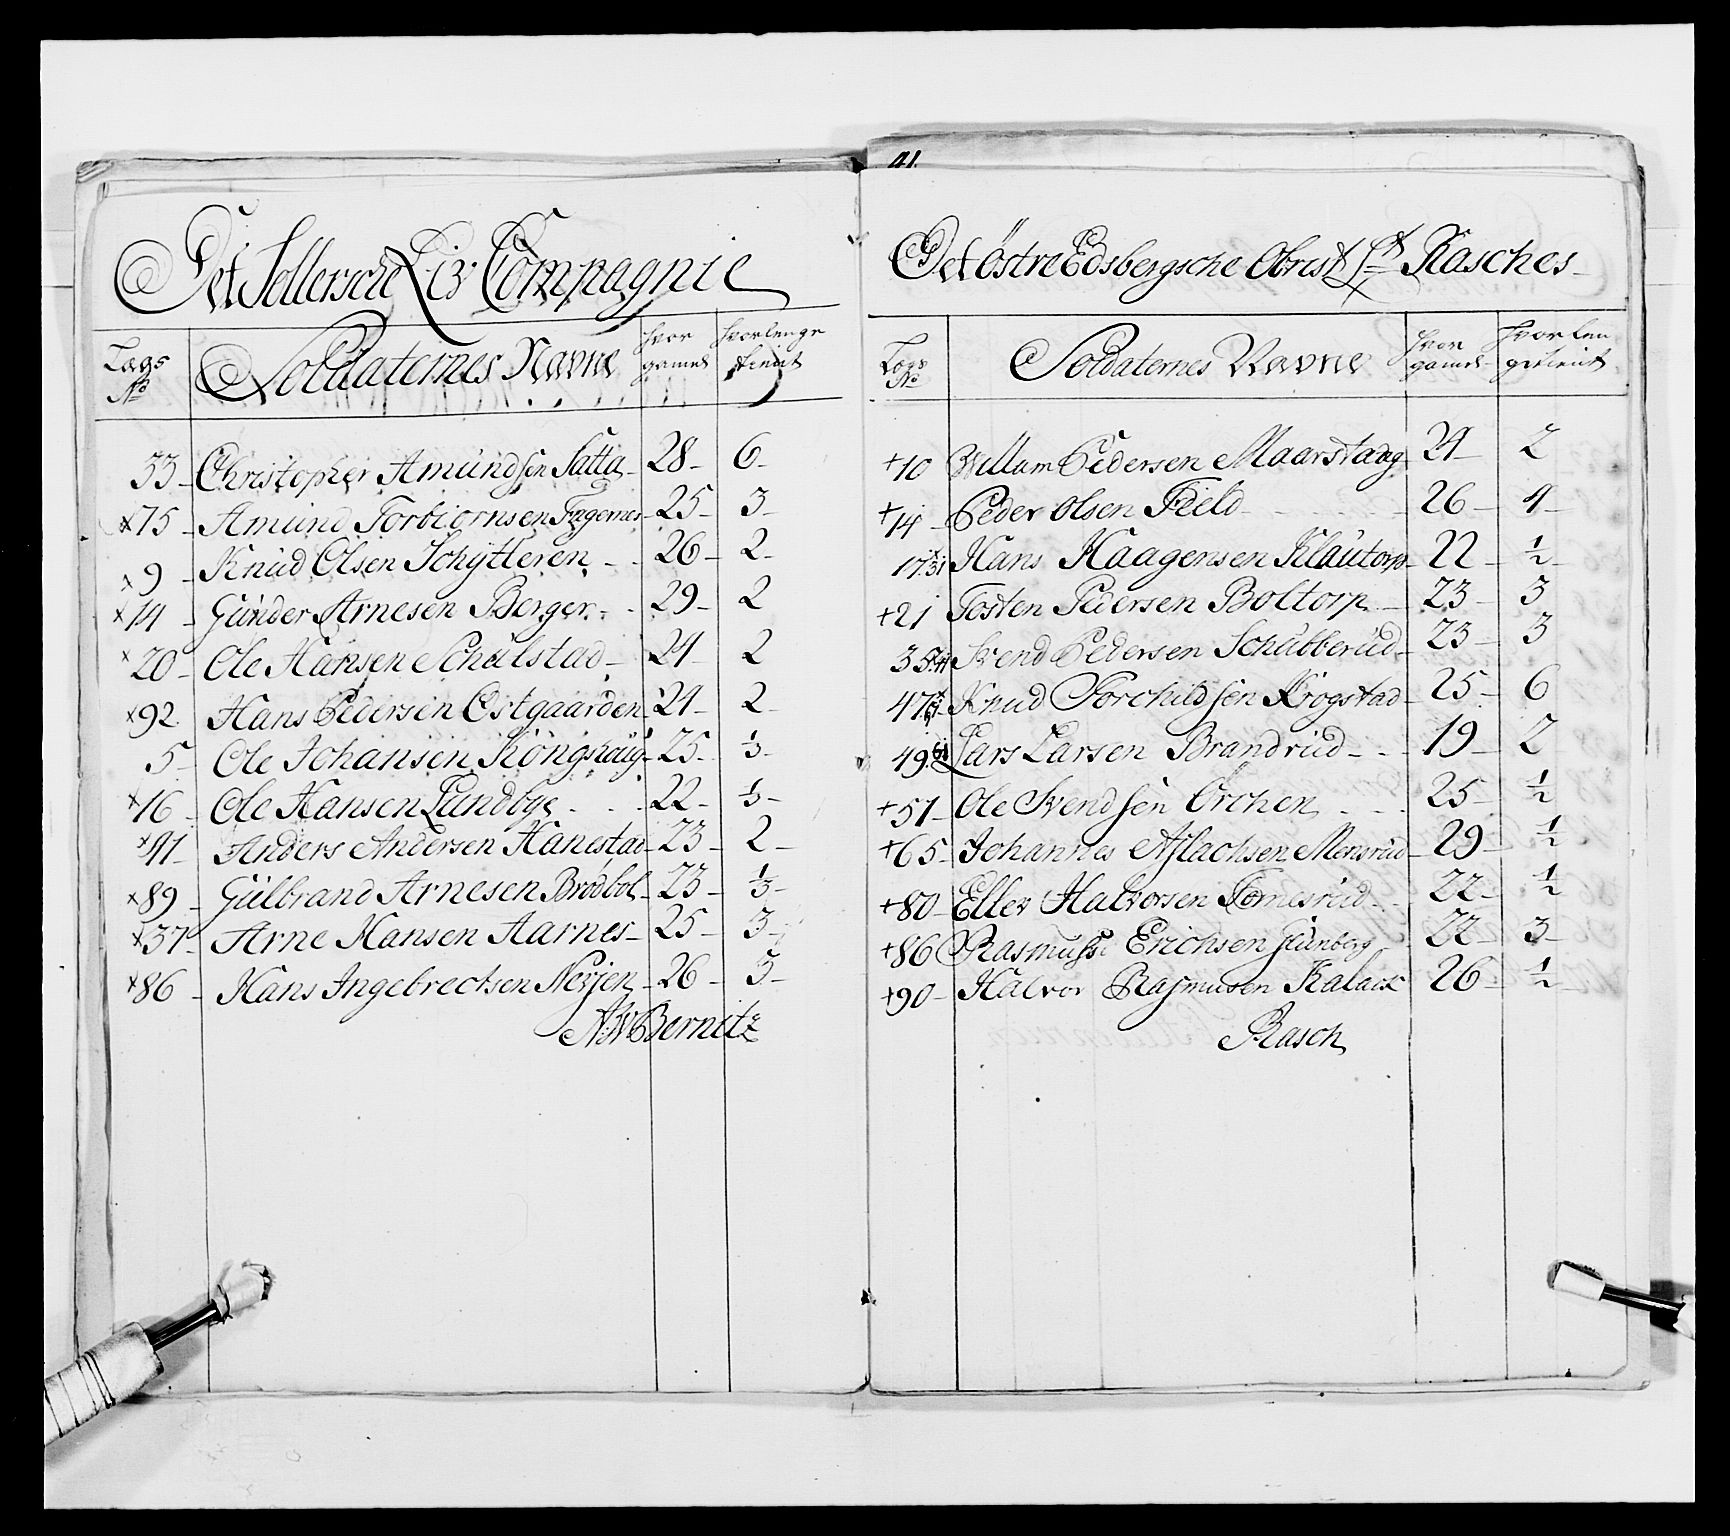 Det Sollersche Liv Compagnie
Lægs No Soldaternes Navne hvor gamel hvorlenge tient
33 Christopher Amundsen Satta 28 6
x 75 Amund Torbiornsen Fugernes 25 3
x 9 Knud Olsen Schytteren 26 2
x 14 Gunder Arnesen Berger 29 2
x 20 Ole Hansen Schulstad 24 2
x 92 Hans Pedersen Ostgaarden 24 2
5 Ole Johansen Kongshaug 25 1/3
x 16 Ole Hansen Lundbye 22 1/3
x 41 Anders Andersen Hanestad 23 2
x 89 Gulbrand Arnesen Brodbol 23 1/3
x 37 Arne Hansen Aarnes 25 3
x 86 Hans Ingebrechtsen Nerjen 26 3
A:W:Bernitz
41.
Det Østre Edsbergsche Obrist Lt Rasches
Lægs No Soldaternes Navne hvor gamel hvor len getient
+ 10 Willum Pedersen Maarstang 24 2
+ 14 Peder Olsen Field 26 4
17 Hans Haagensen Klautorp 22 1/2
+ 21 Tosten Pedersen Boltorp 23 3
35 Svend Pedersen Schubberud 23 3
47 Knud Torchildsen Krogstad 25 6
49 Lars Larsen Brandrud 19 2
+ 51 Ole Svendsen Orchen 25 1/2
+ 65 Johannes Aslachsen Mensrud 29 1/2
+ 80 Ellev Halvorsen Tomesrud 22 1/2
+ 86 Rasmus Erichsen Grunberg 22 3
+ 90 Halvor Rasmusen Kalack 26 1/2
Rasch